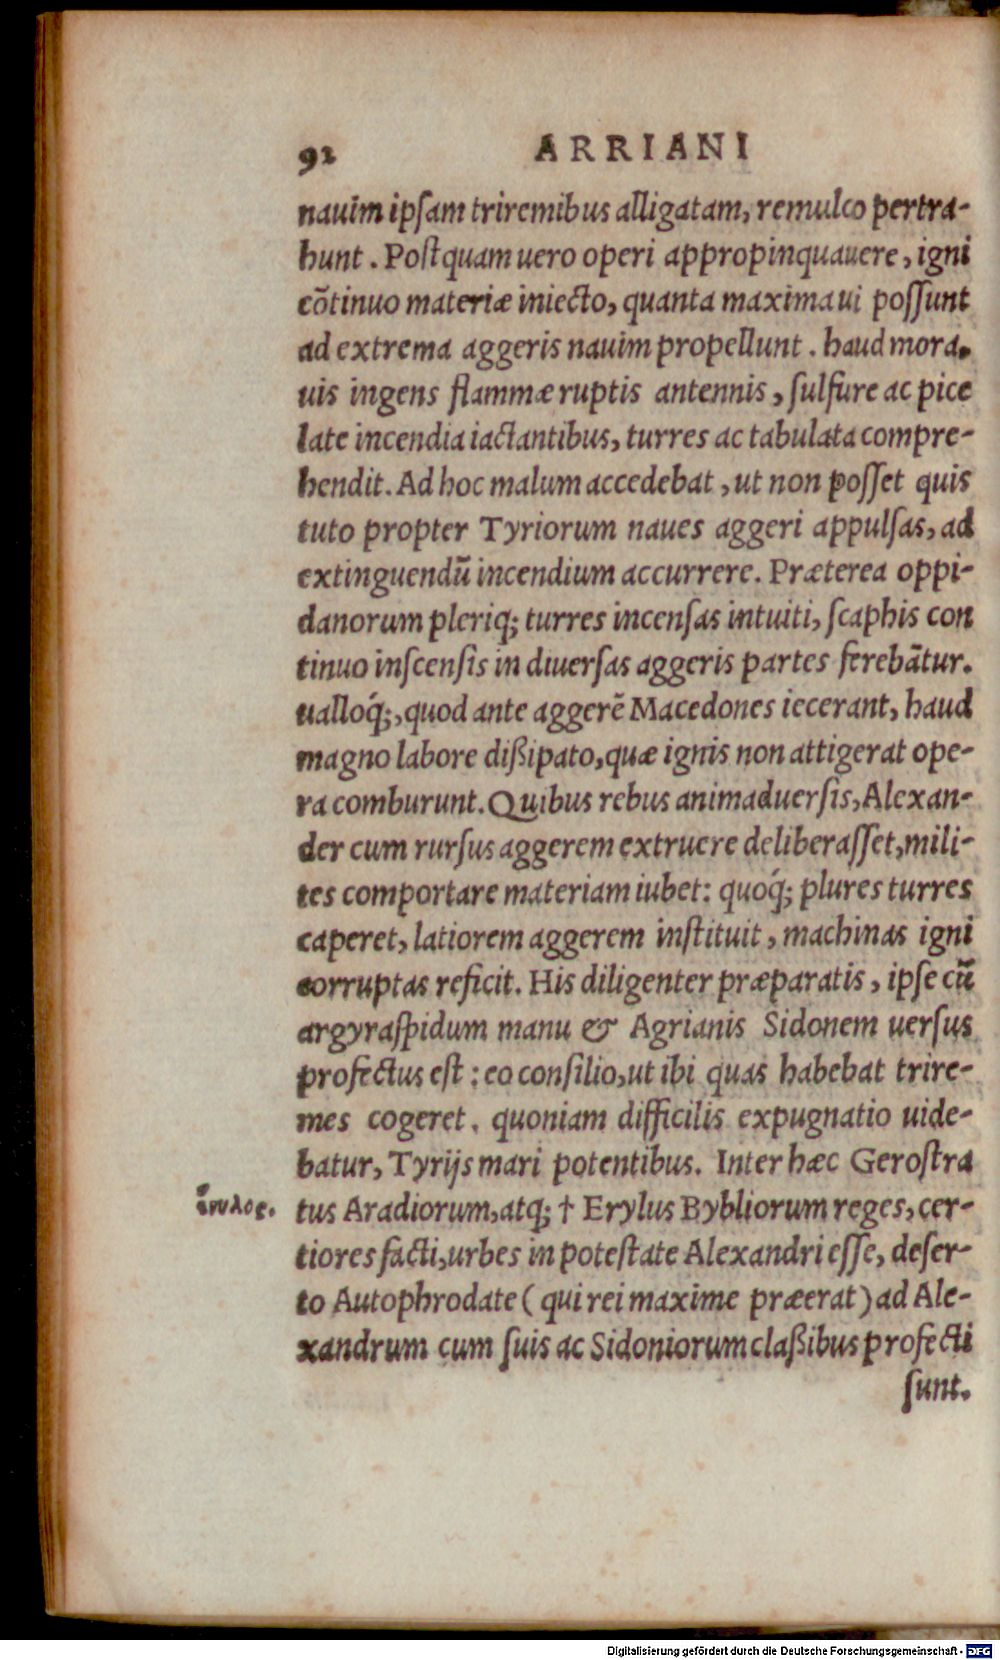 92 ARRIANI
nauim ipſam triremibus alligatam, remulco pertra-
hunt. Poſtquam uero operi appropinquauere, igni
cõtinuo materiæ iniecto, quanta maxima ui poſſunt
ad extrema aggeris nauim propellunt. haud mora,
uis ingens flammæ ruptis antennis, ſulfure ac pice
late incendia iactantibus, turres ac tabulata compre-
hendit. Ad hoc malum accedebat, ut non poſſet quis
tuto propter Tyriorum naues aggeri appulſas, ad
extinguendũ incendium accurrere. Præterea oppi-
danorum pleriq; turres incenſas intuiti, ſcaphis con
tinuo inſcenſis in diuerſas aggeris partes ferebãtur.
ualloq́;, quod ante aggerẽ Macedones iecerant, haud
magno labore dißipato, quæ ignis non attigerat ope-
ra comburunt. Quibus rebus animaduerſis, Alexan-
der cum rurſus aggerem extruere deliberaſſet, mili-
tes comportare materiam iubet: quoq́; plures turres
caperet, latiorem aggerem inſtituit, machinas igni
corruptas reficit. His diligenter præparatis, ipſe cũ
argyraſpidum manu & Agrianis Sidonem uerſus
profectus eſt: eo conſilio, ut ibi quas habebat trire-
mes cogeret. quoniam difficilis expugnatio uide-
batur, Tyrijs mari potentibus. Inter hæc Geroſtra
tus Aradiorum, atq; † Erylus Bybliorum reges, cer-
tiores facti, urbes in poteſtate Alexandri eſſe, deſer-
to Autophrodate (qui rei maxime præerat) ad Ale-
xandrum cum ſuis ac Sidoniorum claßibus profecti
ſunt.
Digitalisierung gefördert durch die Deutsche Forschungsgemeinschaft - DFG